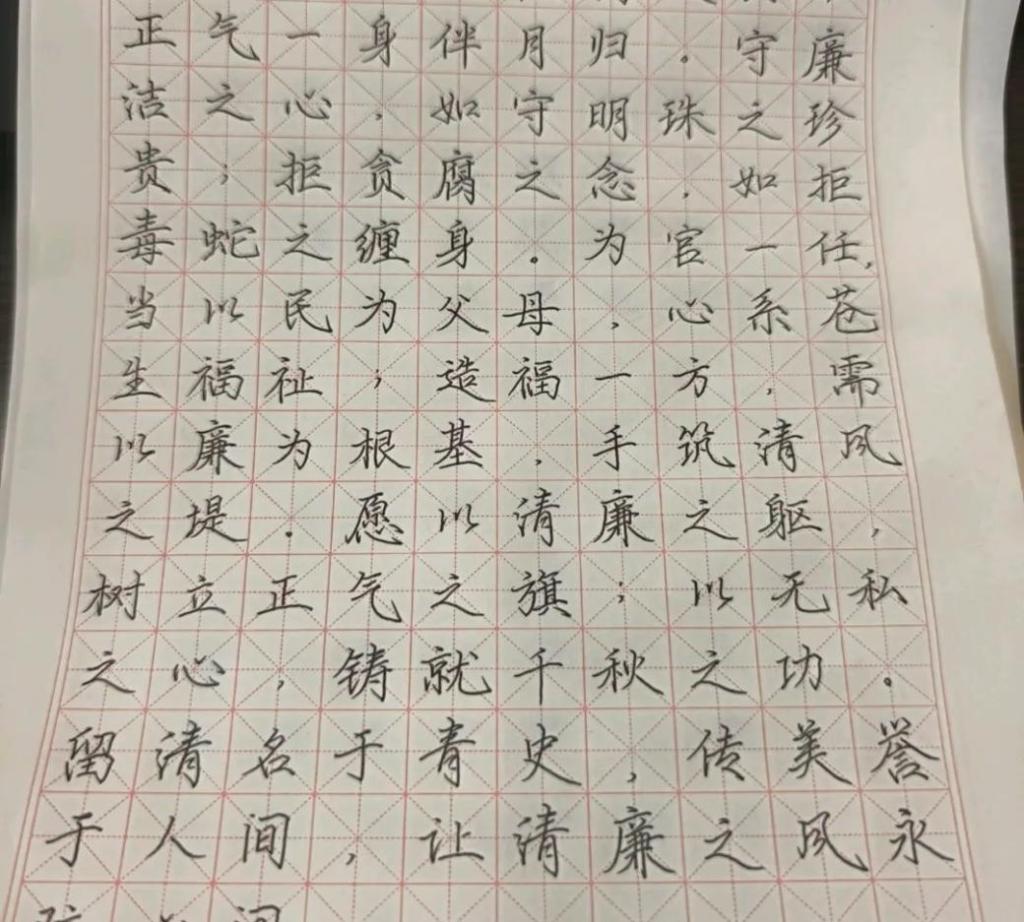 正气一身伴月归。守廉
洁之心，如守明珠之珍
贵；拒贪腐之念，如拒
毒蛇之缠身。为官一任，
当以民为父母，心系苍
生福祉；造福一方，需
以廉为根基，手筑清风
之堤。愿以清廉之躯，
树立正气之旗；以无私
之心，铸就千秋之功。
留清名于青史，传美誉
于人间，让清廉之风永